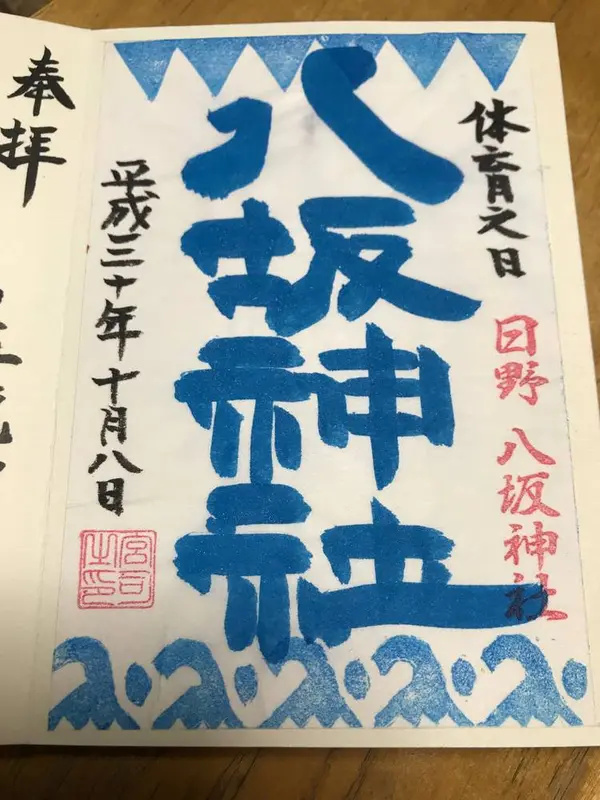 体育之日
日野 八坂神社
八坂神社
平成三十年十月八日
宮司之印
奉拝